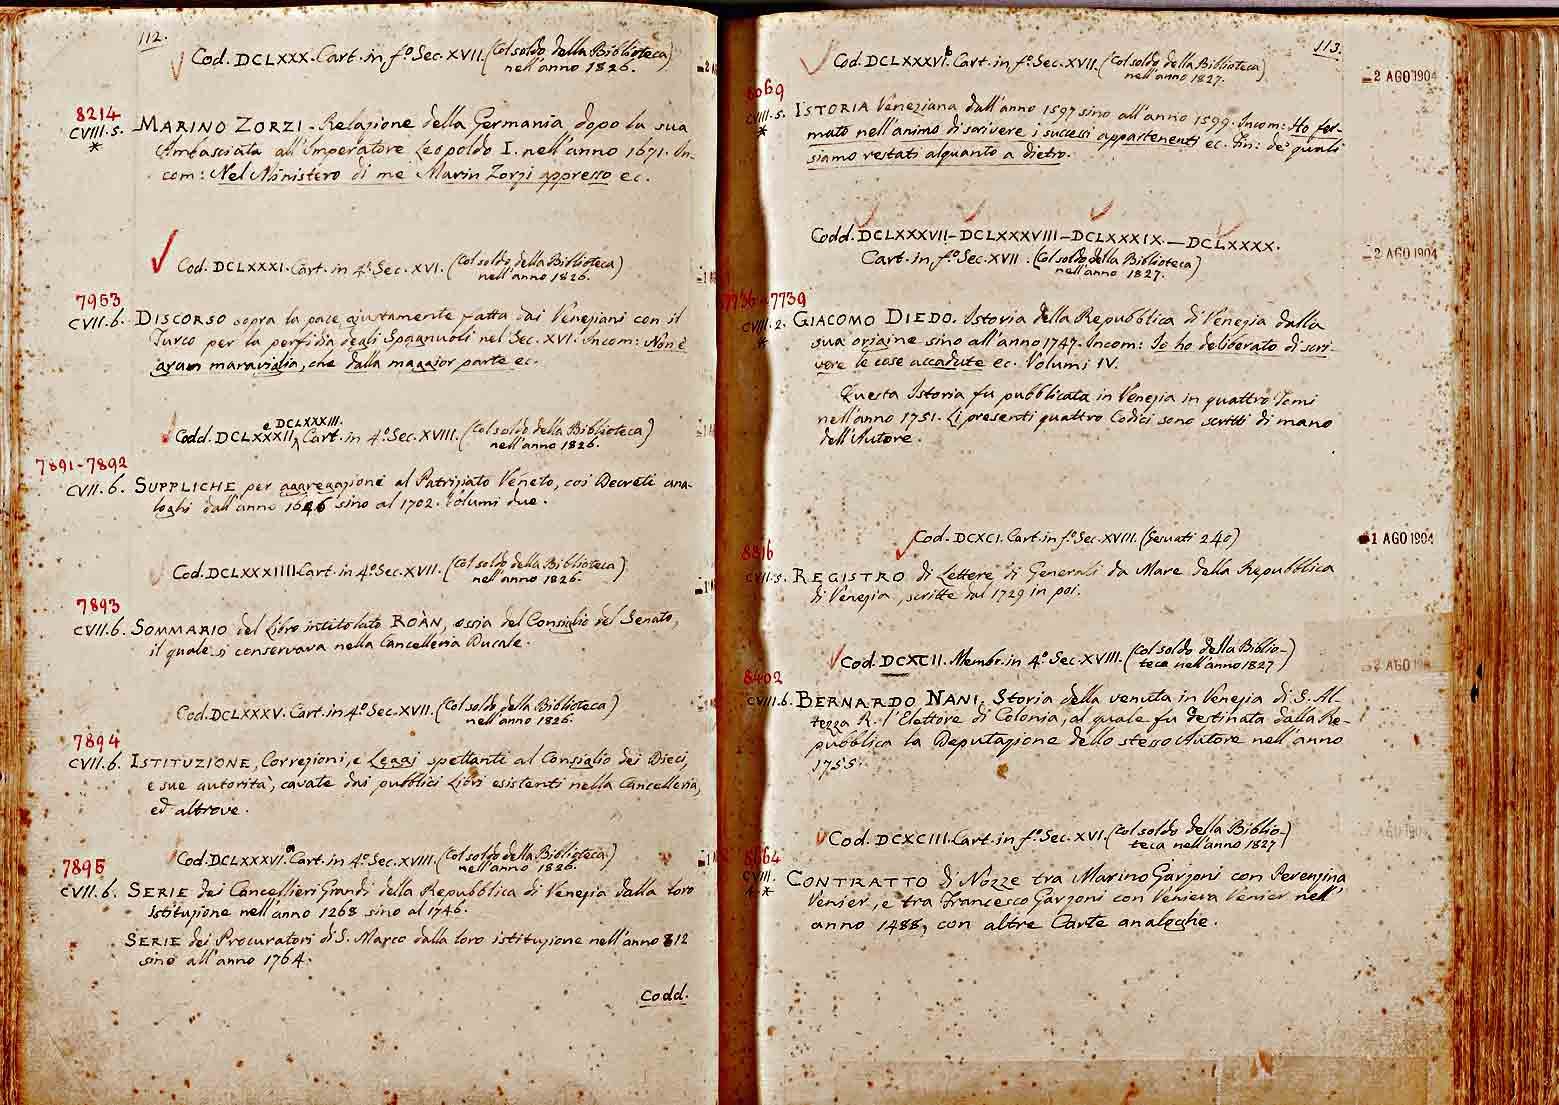 112.
Cod. DCLXXX. Cart. in f.º Sec. XVII. (Col soldo della Biblioteca
nell'anno 1826.)
8214
CVIII. 5.
*
MARINO ZORZI - Relazione della Germania dopo la sua
Ambasciata all'Imperatore Leopoldo I. nell'anno 1671. In-
com: Nel Ministero di me Marin Zorzi appresso ec.
Cod. DCLXXXI. Cart. in 4.º Sec. XVI. (Col soldo della Biblioteca
nell'anno 1826.)
7953
CVII. 6.
DISCORSO sopra la pace giustamente fatta dai Veneziani con il
Turco per la perfidia degli Spagnuoli nel Sec. XVI. Incom: Non è
gran maraviglia, che dalla maggior parte ec.
e DCLXXXIII.
Codd. DCLXXXII, Cart. in 4.º Sec. XVIII. (Col soldo della Biblioteca
nell'anno 1826.)
7891-7892
CVII. 6.
SUPPLICHE per aggregazione al Patriziato Veneto, coi Decreti ana-
loghi dall'anno 1646 sino al 1702. Volumi due.
Cod. DCLXXXIIII. Cart. in 4.º Sec. XVII. (Col soldo della Biblioteca
nell'anno 1826.)
7893
CVII. 6.
SOMMARIO del Libro intitolato ROÀN, ossia del Consiglio del Senato,
il quale si conservava nella Cancelleria Ducale.
Cod. DCLXXXV. Cart. in 4.º Sec. XVII. (Col soldo della Biblioteca
nell'anno 1826.)
7894
CVII. 6.
ISTITUZIONE, Correzioni, e Leggi spettanti al Consiglio dei Dieci,
e sue autorità, cavate dai pubblici Libri esistenti nella Cancelleria,
ed altrove.
Cod. DCLXXXVI.a Cart. in 4.º Sec. XVIII. (Col soldo della Biblioteca
nell'anno 1826.)
7895
CVII. 6.
SERIE dei Cancellieri Grandi della Repubblica di Venezia dalla loro
istituzione nell'anno 1268 sino al 1746.
SERIE dei Procuratori di S. Marco dalla loro istituzione nell'anno 812
sino all'anno 1764.
Codd.
113.
Cod. DCLXXXVI.b Cart. in f.º Sec. XVII. (Col soldo della Biblioteca
nell'anno 1827.)
2 AGO 1904
8069
CVIII. 5.
*
ISTORIA Veneziana dall'anno 1597 sino all'anno 1599. Incom: Ho fer-
mato nell'animo di scrivere i successi appartenenti ec. Fin: de' quali
siamo restati alquanto a dietro.
Codd. DCLXXXVII - DCLXXXVIII - DCLXXXIX. - DCLXXXX.
Cart. in f.º Sec. XVII. (Col soldo della Biblioteca
nell'anno 1827.)
2 AGO 1904
7736-7739
CVIII. 2.
*
GIACOMO DIEDO. Istoria della Repubblica di Venezia dalla
sua origine sino all'anno 1747. Incom: Io ho deliberato di scri-
vere le cose accadute ec. Volumi IV.
Questa Istoria fu pubblicata in Venezia in quattro Tomi
nell'anno 1751. Li presenti quattro Codici sono scritti di mano
dell'Autore.
Cod. DCXCI. Cart. in f.º Sec. XVIII. (Gesuati 240)
1 AGO 1904
8816
CVII. 5.
REGISTRO di Lettere di Generali da Mare della Repubblica
di Venezia, scritte dal 1729 in poi.
Cod. DCXCII. Membr. in 4.º Sec. XVIII. (Col soldo della Biblio-
teca nell'anno 1827)
2 AGO 190
8402
CVIII. 6.
BERNARDO NANI, Storia della venuta in Venezia di S. Al-
tezza R. l'Elettore di Colonia, al quale fu destinata dalla Re-
pubblica la Deputazione dello stesso Autore nell'anno
1755.
Cod. DCXCIII. Cart. in f.º Sec. XVI. (Col soldo della Biblio-
teca nell'anno 1827)
AGO 190
8664
CVIII.
CONTRATTO di Nozze tra Marino Garzoni con Perenzina
Venier, e tra Francesco Garzoni con Veniera Venier nell'
anno 1488, con altre Carte analoghe.